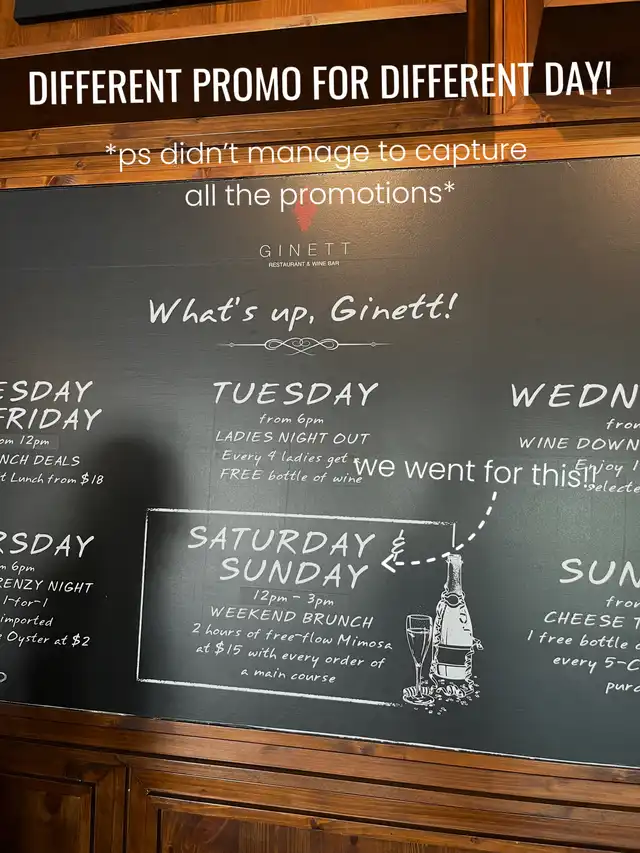 DIFFERENT PROMO FOR DIFFERENT DAY!
*ps didn't manage to capture
all the promotions*
GINETT
RESTAURANT & WINE BAR
What's up, Ginett!
ESDAY
FRIDAY
om 12pm
NCH DEALS
t Lunch from $18
TUESDAY
from 6pm
LADIES NIGHT OUT
Every 4 ladies get
FREE bottle of wine
WEDN
fro
WINE DOWN
Enjoy 1
selecte
we went for this!!
RSDAY
m 6pm
RENZY NIGHT
1-for-1
imported
Oyster at $2
SATURDAY &
SUNDAY
12pm - 3pm
WEEKEND BRUNCH
2 hours of free-flow Mimosa
at $15 with every order of
a main course
SUN
fro
CHEESE T
1 free bottle o
every 5-C
pur